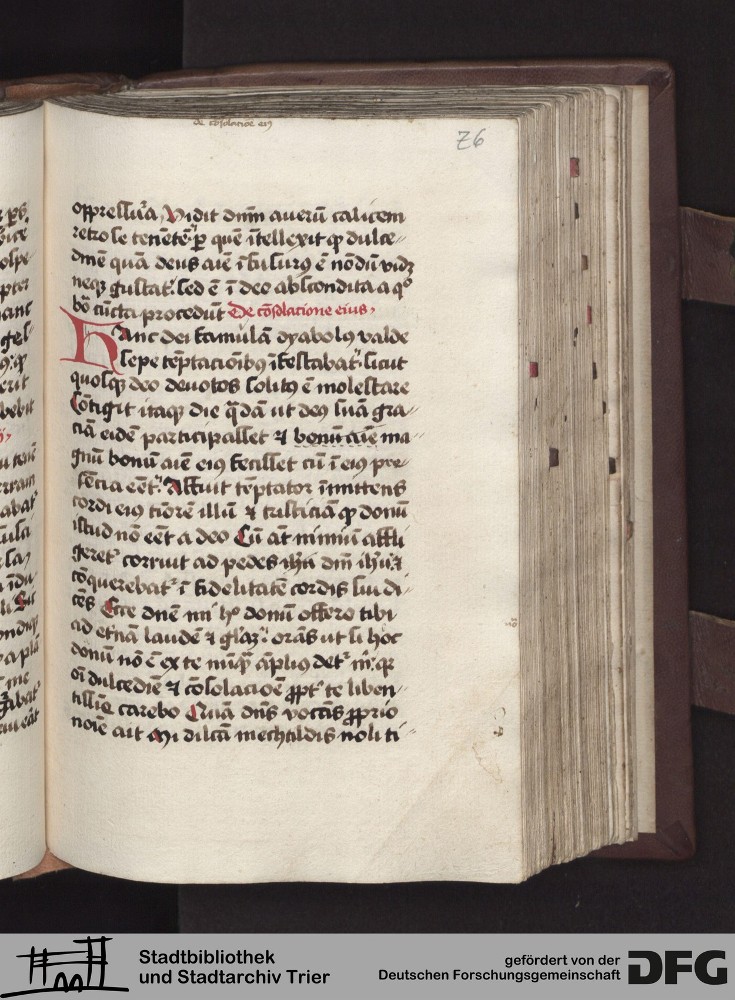 de cōsolacōe eiꝰ
76
oppressura Vidit dnm̄ aureū calicem
retro se tenētē ꝑ quē ītellexit ꝙ dulce-
dinē quā deus aīe īfusurꝰ ē nōdū vidꝫ
neqꝫ gustat sed ē ī deo abscondita a qͦ
bōa cūcta procedūt De cōsolacione eius
Hanc dei famulā dyabolꝰ valde
sepe tēptacōibꝫ īfestabat sicut
quosqꝫ deo devotos solitꝰ ē molestare
Cōtigit itaqꝫ die q̄dā ut deꝰ suā gra-
ciā eidē participasset ⁊ bonū aīe ma
gnū bonū aīe eiꝰ fecisset cū ī eiꝰ pre-
sēcia eēt Affuit tēptator īmittens
cordi eiꝰ tiōrē illū ⁊ tristiciā ꝙ donū
istud nō eēt a deo Cū āt nimiū affli
geret᷑ corruit ad pedes dnī ihū ⁊
cōquerebat᷑ ī fidelitatē cordis sui di-
cēs Ecce dnē mi hͦ donū offero tibi
ad et̄nā laudē ⁊ glāꝫ orās ut si hoc
donū nō ē ex te nūqꝫ āplius det᷑ m̄ qꝛ
oī dulcedīe ⁊ cōsolacōe ꝓpt᷑ te liben-
tissīe carebo Quā dn̄s vocās ꝓprio
noīe ait Mi dilcā mechtildis noli ti-
Stadtbibliothek
und Stadtarchiv Trier
gefördert von der
Deutschen Forschungsgemeinschaft
DFG